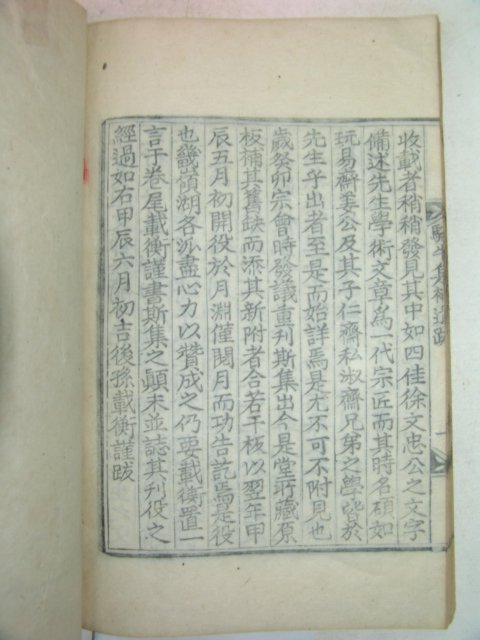 收載者稍稍發見其中如四佳徐文忠公之文字
備述先生學術文章爲一代宗匠而其時名碩如
玩易齋姜公及其子仁齋私淑齋兄弟之學皆於
先生乎出者至是而始詳焉是尤不可不附見也
歲癸卯宗會時發議重刋斯集出今是堂所藏原
板補其舊缺而添其新附者合若干板以翌年甲
辰五月初開役於月淵僅閱月而功告訖焉是役
也畿嶺湖各派盡心力以贊成之仍要載衡置一
言于卷尾載衡謹書斯集之顚末並誌其刋役之
經過如右甲辰六月初吉後孫載衡謹跋